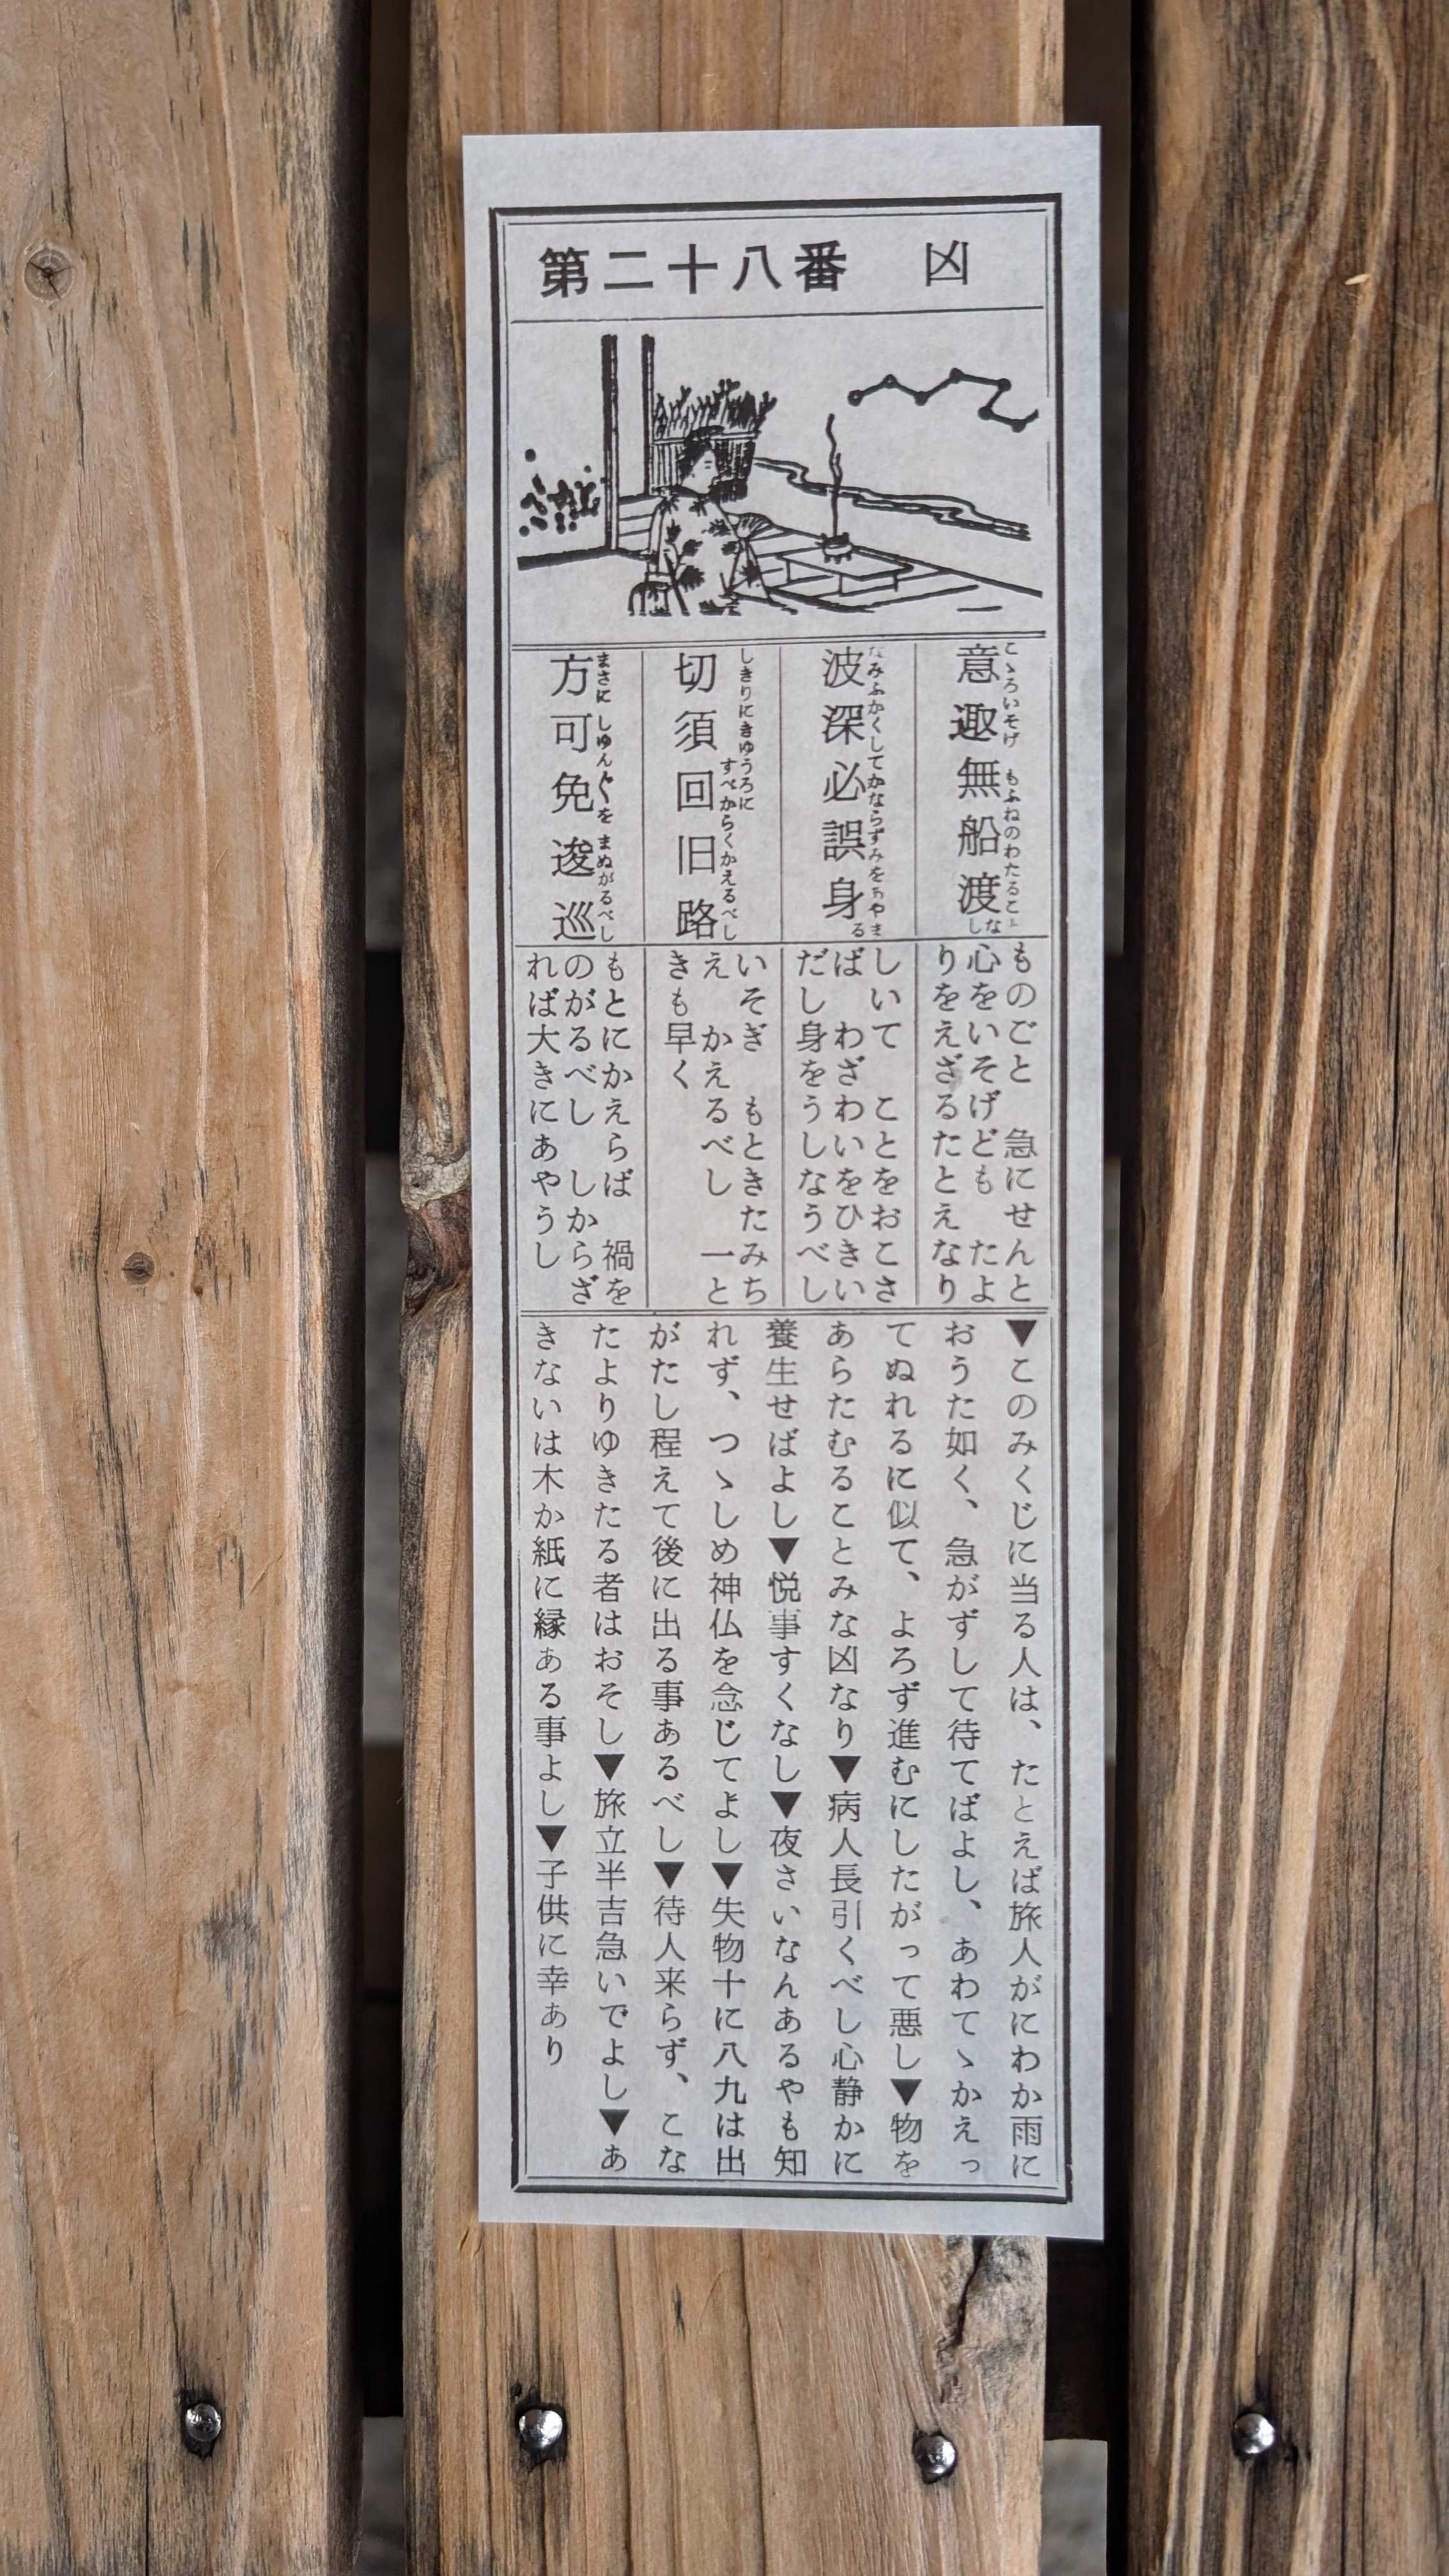 第二十八番　凶
意趣無船渡
こゝろいそげ　もふねのわたることなし
波深必誤身
なみふかくしてかならずみをあやまる
切須回旧路
しきりにきゅうろに
すべからくかえるべし
方可免逡巡
まさに　しゅん〴〵を　まぬがるべし
ものごと　急にせんと
心をいそげども　たよ
りをえざるたとえなり
しいて　ことをおこさ
ば　わざわいをひきい
だし身をうしなうべし
いそぎ　もときたみち
え　かえるべし　一と
きも早く
もとにかえらば　禍を
のがるべし　しからざ
れば大きにあやうし
▼このみくじに当る人は、たとえば旅人がにわか雨に
おうた如く、急がずして待てばよし、あわてゝかえっ
てぬれるに似て、よろず進むにしたがって悪し▼物を
あらたむることみな凶なり▼病人長引くべし心静かに
養生せばよし▼悦事すくなし▼夜さいなんあるやも知
れず、つゝしめ神仏を念じてよし▼失物十に八九は出
がたし程えて後に出る事あるべし▼待人来らず、こな
たよりゆきたる者はおそし▼旅立半吉急いでよし▼あ
きないは木か紙に縁ある事よし▼子供に幸あり